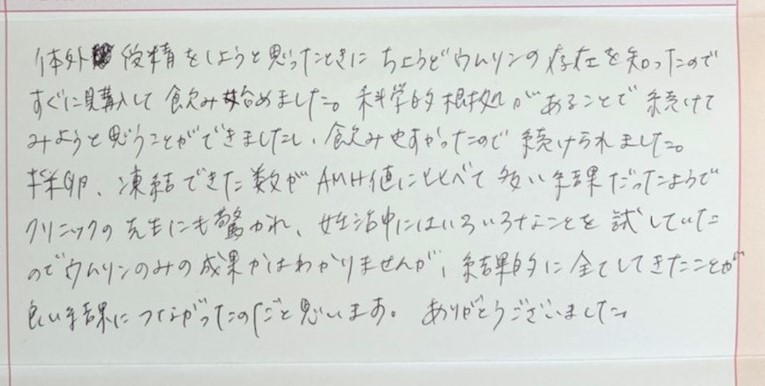 体外受精をしようと思ったときにちょうどウムリンの存在を知ったので
すぐに購入して飲み始めました。科学的根拠があることで続けて
みようと思うことができましたし、飲みやすかったので続けられました。
採卵、凍結できた数がAMH値にくらべて多い結果だったようで
クリニックの先生にも驚かれ、妊活中にはいろいろなことを試していた
のでウムリンのみの成果かはわかりませんが、結果的に全てしてきたことが
良い結果につながったのだと思います。ありがとうございました。